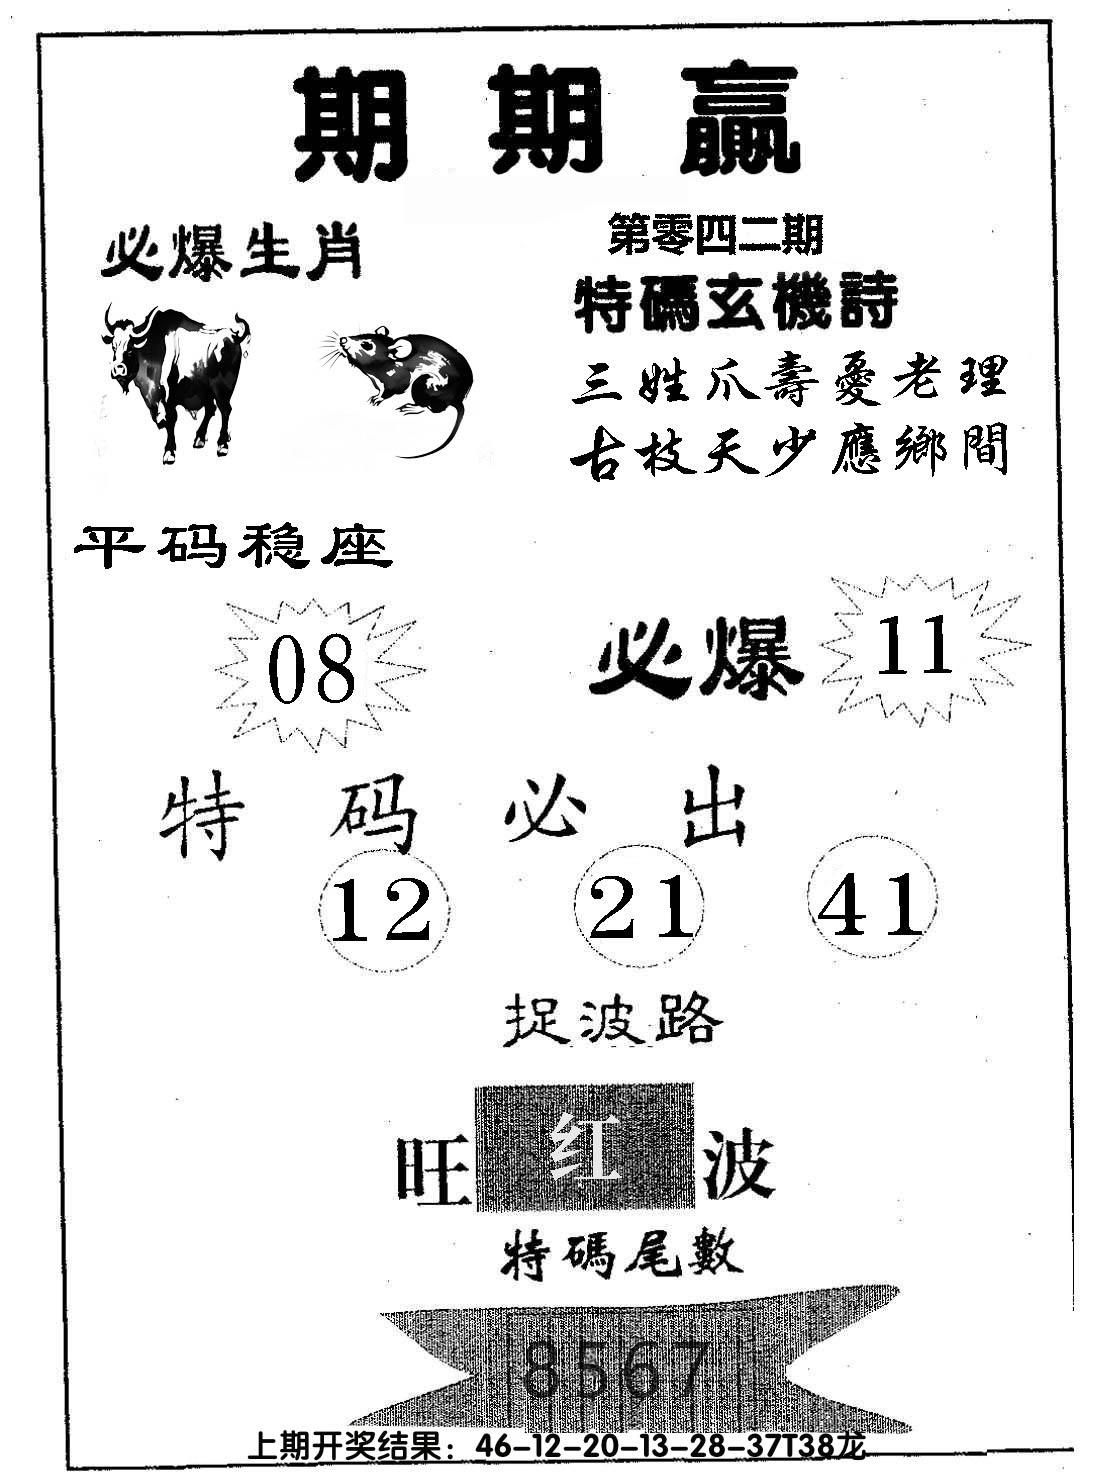 期期赢
必爆生肖
第零四二期
特碼玄機詩
三姓爪壽憂老理
古枝天少應鄉間
平码稳座
08
必爆
11
特码必出
12 21 41
捉波路
旺红波
特碼尾數
8567
上期开奖结果：46-12-20-13-28-37T38龙